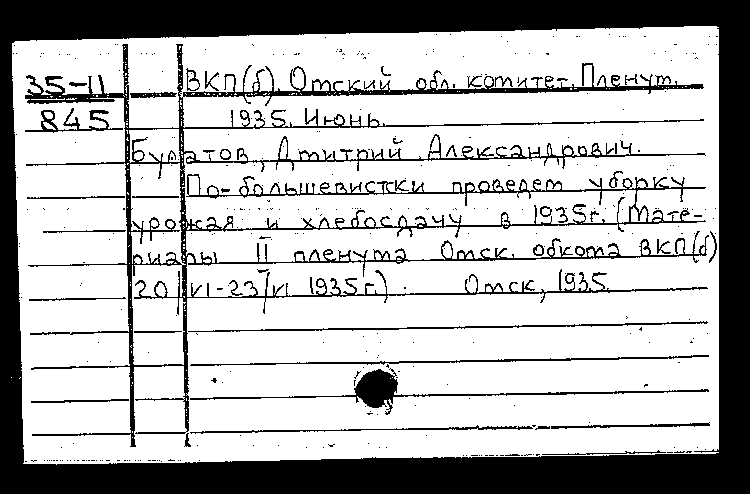 35-11 ВКП(б). Омский обл. комитет. Пленум.
845 1935. Июнь.
Булатов, Дмитрий Александрович.
По-большевистски проведем уборку
урожая и хлебосдачу в 1935г. (Мате-
риалы II пленума Омск. обкома ВКП(б)
20/VI-23/VI 1935г.). Омск, 1935.